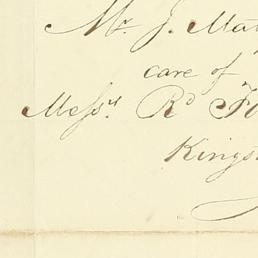 Mr J. Mat
care of
Messrs Rd
Kings